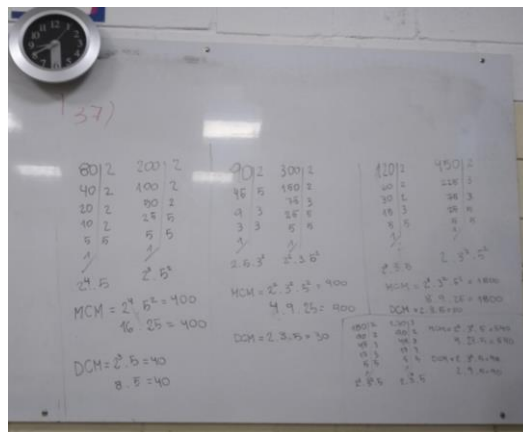 37)
80|2
40|2
20|2
10|2
5|5
1
2⁴.5
200|2
100|2
50|2
25|5
5|5
1
2³.5²
MCM = 2⁴.5² = 400
16.25 = 400
DCM = 2³.5 = 40
8.5 = 40
90|2
45|5
9|3
3|3
1
2.5.3²
300|2
150|2
75|3
25|5
5|5
1
2².3.5²
MCM = 2².3².5² = 900
4.9.25 = 900
DCM = 2.3.5 = 30
120|2
60|2
30|2
15|3
5|5
1
2³.3.5
450|2
225|3
75|3
25|5
5|5
1
2.3².5²
MCM = 2³.3².5² = 1800
8.9.25 = 1800
DCM = 2.3.5 = 30